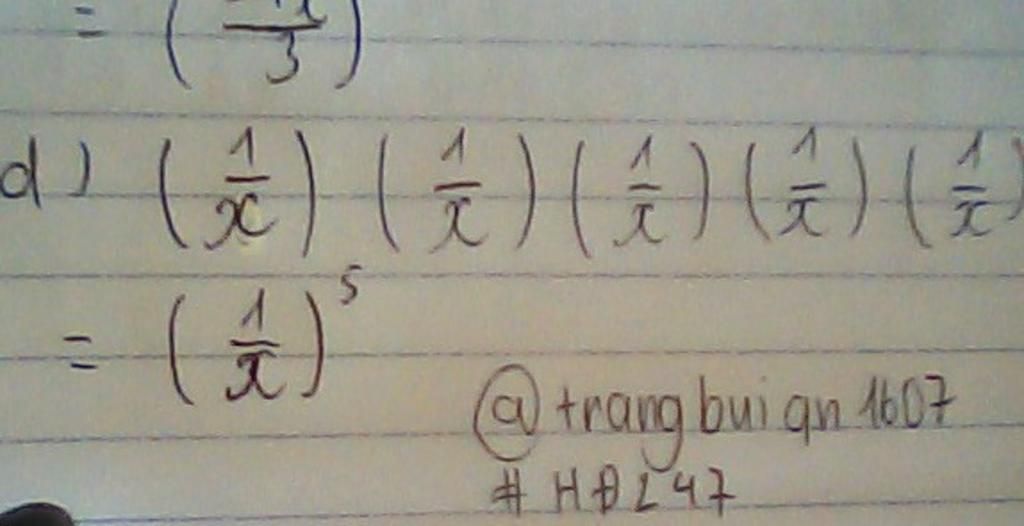 = ( /3)
d) (1/x) (1/x) (1/x) (1/x) (1/x)
= (1/x)^5
@trangbuiqn1607
#HĐ247